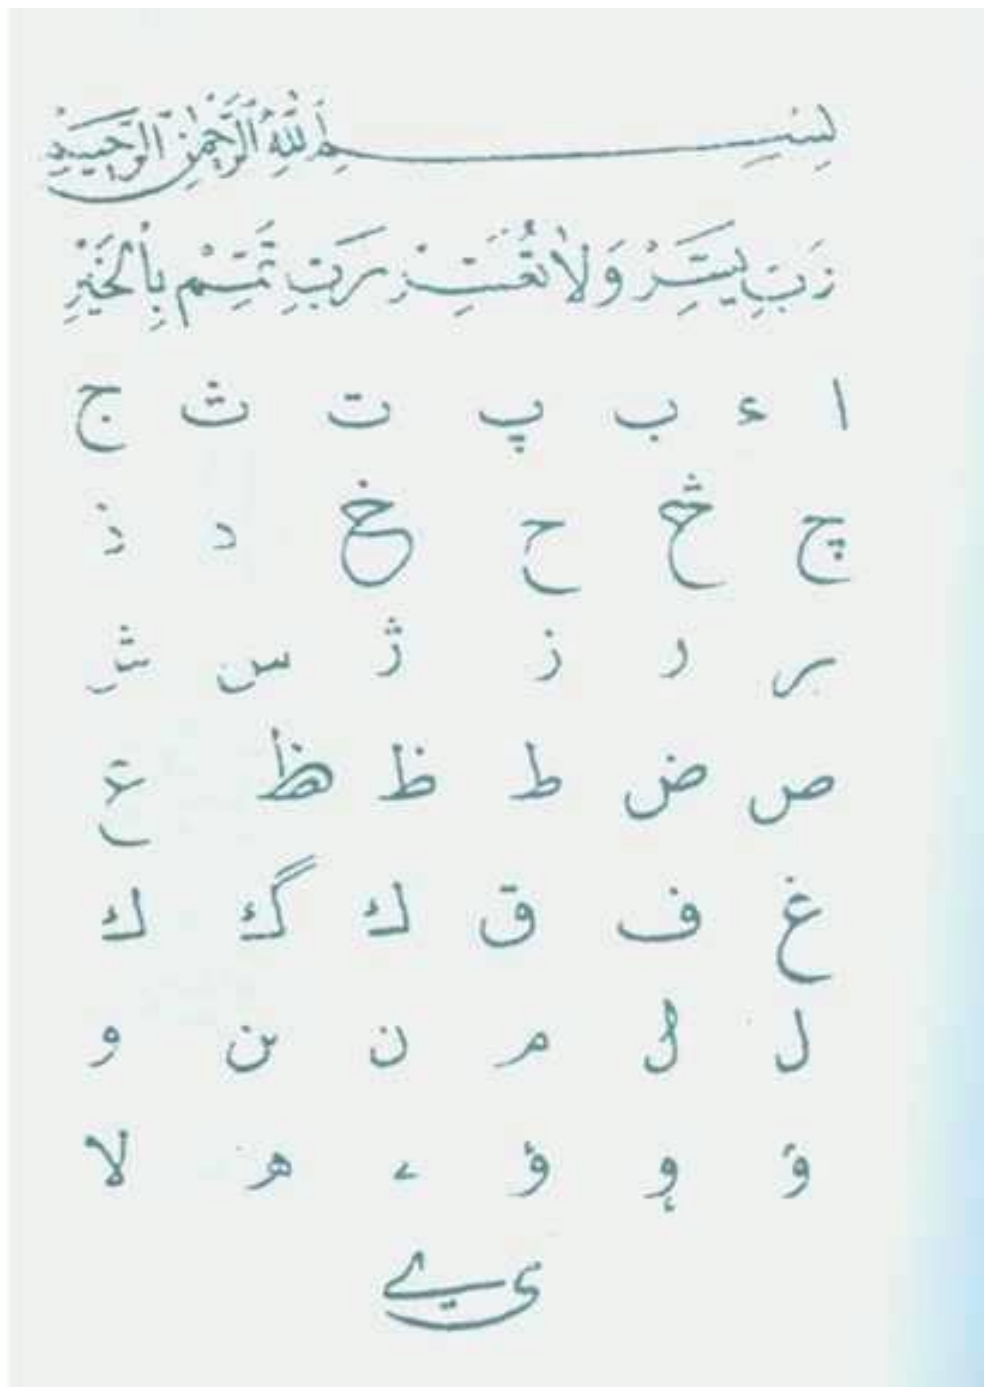 بِسْمِ اللهِ الرَّحْمٰنِ الرَّحِيمِ
رَبِّ يَسِّرْ وَلَا تُعَسِّرْ رَبِّ تَمِّمْ بِالْخَيْرِ
ا ء ب پ ت ث ج
چ څ ح خ د ذ
ر ز ژ س ش
ص ض ط ظ ع
غ ف ق ك گ ك
ل م ن و
و ؤ ء ه لا
ي ے